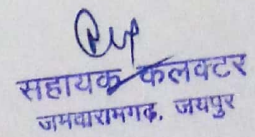 सहायक कलक्टर
जमवारामगढ, जयपुर